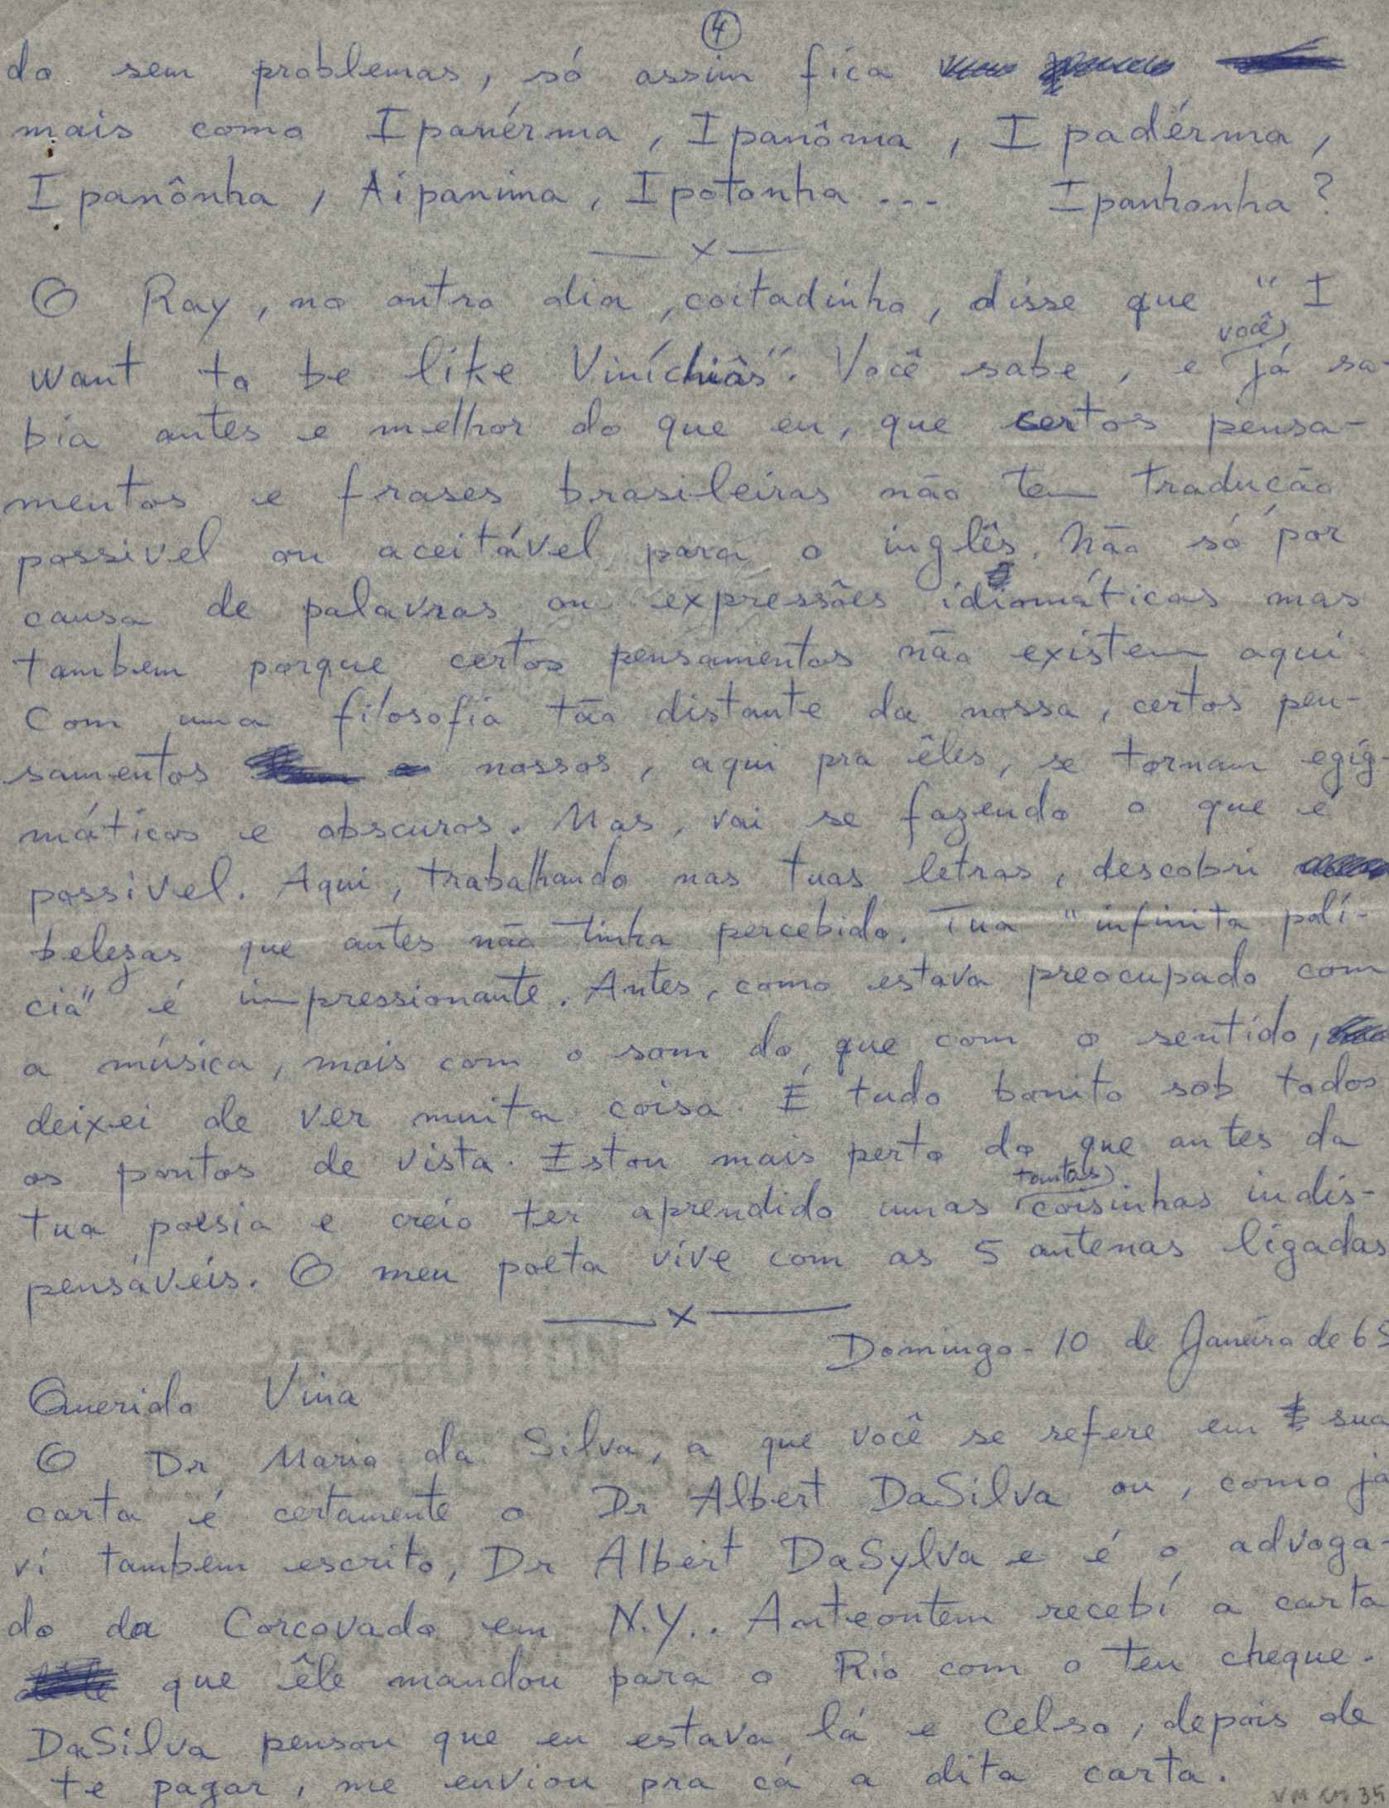 4
do sem problemas, só assim fica
mais como Ipanérma, Ipanôma, Ipadérma,
Ipanônha, Aipanima, Ipotonha... Ipanhonha?
—x—
O Ray, no outro dia, coitadinho, disse que "I
want to be like Viníchiâs". Você sabe, e você já sa-
bia antes e melhor do que eu, que certos pensa-
mentos e frases brasileiras não tem tradução
possivel ou aceitável para o inglês. Não só por
causa de palavras ou expressões idiomáticas mas
tambem porque certos pensamentos não existem aqui.
Com uma filosofia tão distante da nossa, certos pen-
samentos nossos, aqui pra êles, se tornam egig-
máticos e obscuros. Mas, vai se fazendo o que é
possivel. Aqui, trabalhando nas tuas letras, descobri
belezas que antes não tinha percebido. Tua "infinita polí-
cia" é impressionante. Antes, como estava preocupado com
a música, mais com o som do que com o sentido,
deixei de ver muita coisa. É tudo bonito sob todos
os pontos de vista. Estou mais perto do que antes da
tua poesia e creio ter aprendido umas tantas coisinhas indis-
pensáveis. O meu poeta vive com as 5 antenas ligadas
—x—
Domingo - 10 de Janeiro de 65
Querido Vina
O Dr Mario da Silva, a que você se refere em sua
carta é certamente o Dr Albert DaSilva ou, como já
vi tambem escrito, Dr Albert DaSylva e é o advoga-
do da Corcovado em N.Y.. Anteontem recebí a carta
que êle mandou para o Rio com o teu cheque.
DaSilva pensou que eu estava lá e Celso, depois de
te pagar, me enviou pra cá a dita carta.